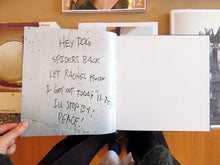 HEY DOG
SPIDERS BACK
LET RACHEL KNOW
I GOT OUT TODAY
I'LL STOP BY!
PEACE!